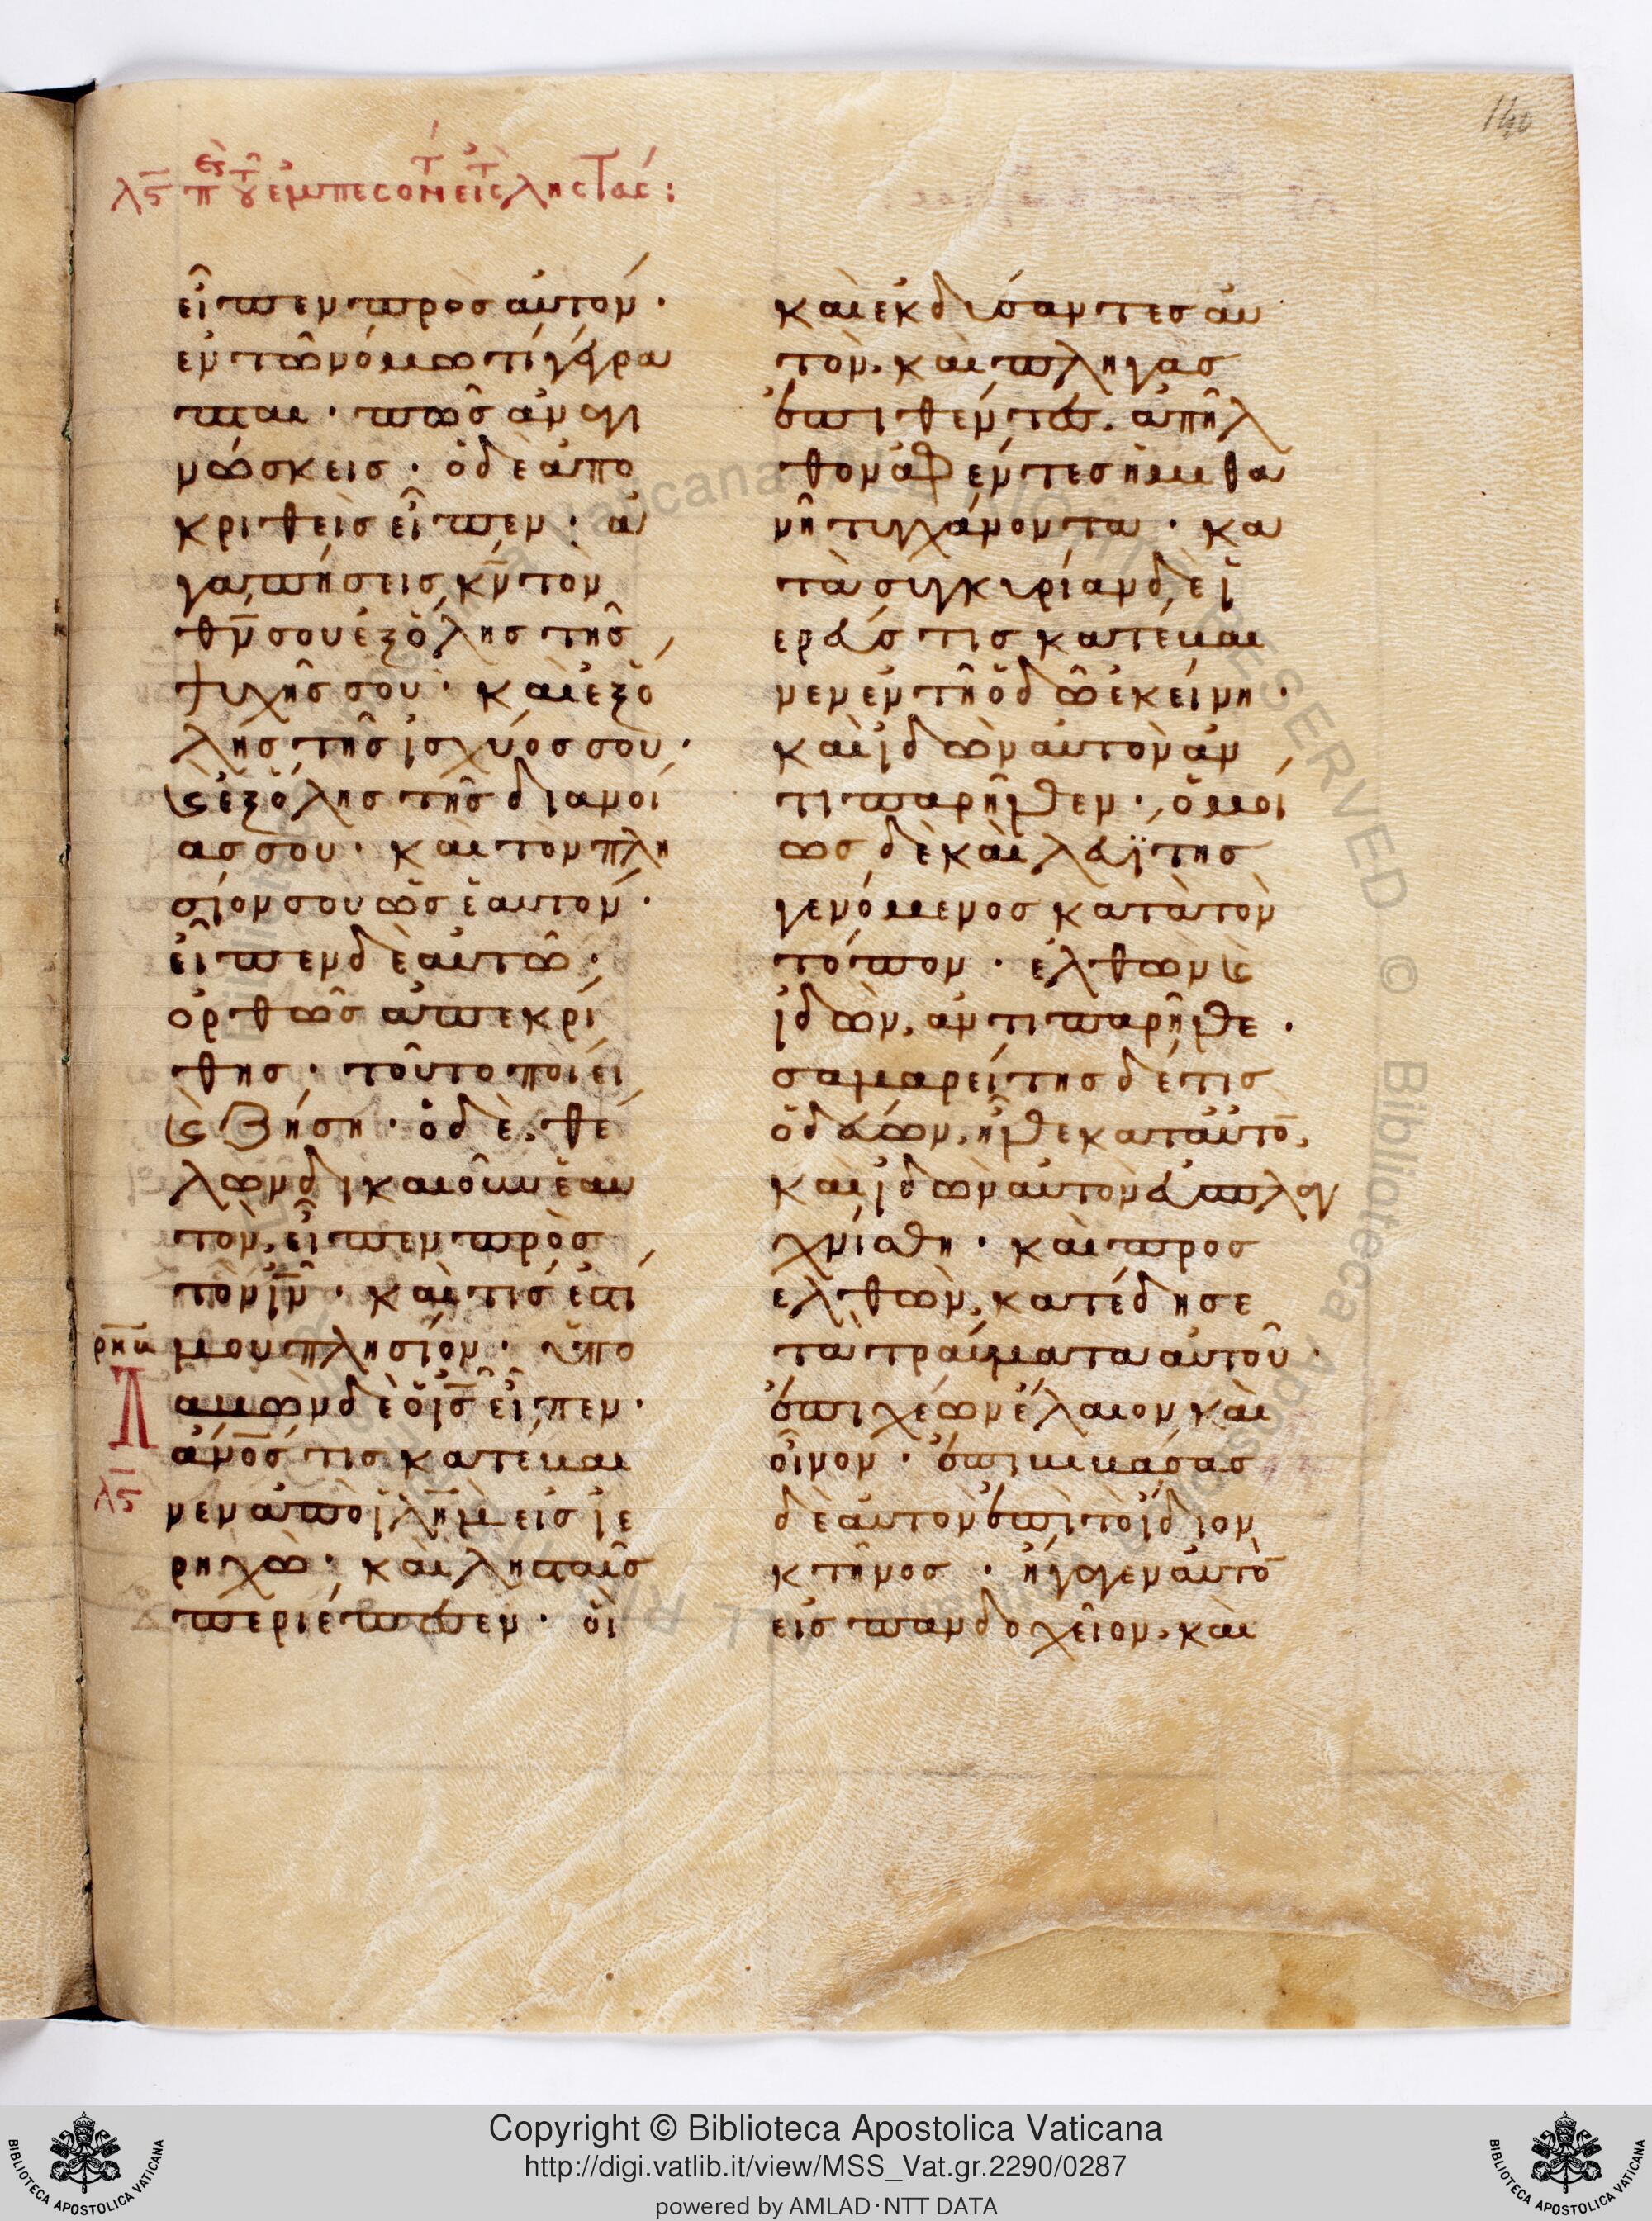 140
λϛ πε γ τοῦ ἐμπεσόντος εἰς τοὺς ληστάς:
εἶπεν πρὸς αὐτόν·
ἐν τῶ νόμω τί γέγρα
πται· πῶς ἀναγι
νώσκεις· ὁ δὲ ἀπο
κριθεὶς εἶπεν· ἀ
γαπήσεις κν̄ τὸν
θν̄ σου ἐξ ὅλης τῆς
ψυχῆς σου· καὶ ἐξ ὅ
λης τῆς ἰσχύος σου·
ϗ ἐξ ὅλης τῆς διανοί
ας σου· καὶ τὸν πλη
σίον σου ὡς ἑαυτόν·
εἶπεν δὲ αὐτῶ·
ὀρθῶς ἀπεκρί
θης· τοῦτο ποίει
ϗ ζήση· ὁ δὲ, θέ
λων δικαιοῦν ἑαυ
τὸν, εἶπεν πρὸς
τὸν ιν̄· καὶ τίς ἐστί
μου πλησίον· ὑπο
λαβὼν δὲ ὁ ις̄ εἶπεν·
ἄνος̄ τις κατέβαι
νεν ἀπὸ ἰλῆμ εἰς ἰε
ρηχῶ· καὶ λησταῖς
περιέπεσεν· οἳ
καὶ ἐκδύσαντες αὐ
τὸν, καὶ πληγὰς
ἐπιθέντες, ἀπῆλ
θον ἀφέντες ἡμιθα
νῆ τυγχάνοντα· κα
τὰ συγκυρίαν δὲ ἱ
ερεύς τις κατέβαι
νεν ἐν τῆ ὁδῶ ἐκείνη·
καὶ ἰδὼν αὐτὸν ἀν
τιπαρῆλθεν· ὁμοί
ως δὲ καὶ λευΐτης
γενόμενος κατὰ τὸν
τόπον· ἐλθὼν ϗ
ἰδὼν, ἀντιπαρῆλθε·
σαμαρείτης δέ τις
ὁδεύων, ἦλθε κατ αὐτὸ̄,
καὶ ἰδὼν αὐτὸν ἐσπλαγ
χνίσθη· καὶ προσ
ελθὼν, κατέδησε
τὰ τραύματα αὐτοῦ·
ἐπιχέων ἔλαιον καὶ
οἶνον· ἐπιβιβάσας
δὲ αὐτὸν ἐπὶ τὸ ἴδιον
κτῆνος· ἤγαγεν αὐτὸ̄
εἰς πανδοχεῖον, καὶ
λϛ
Copyright © Biblioteca Apostolica Vaticana
http://digi.vatlib.it/view/MSS_Vat.gr.2290/0287
powered by AMLAD·NTT DATA